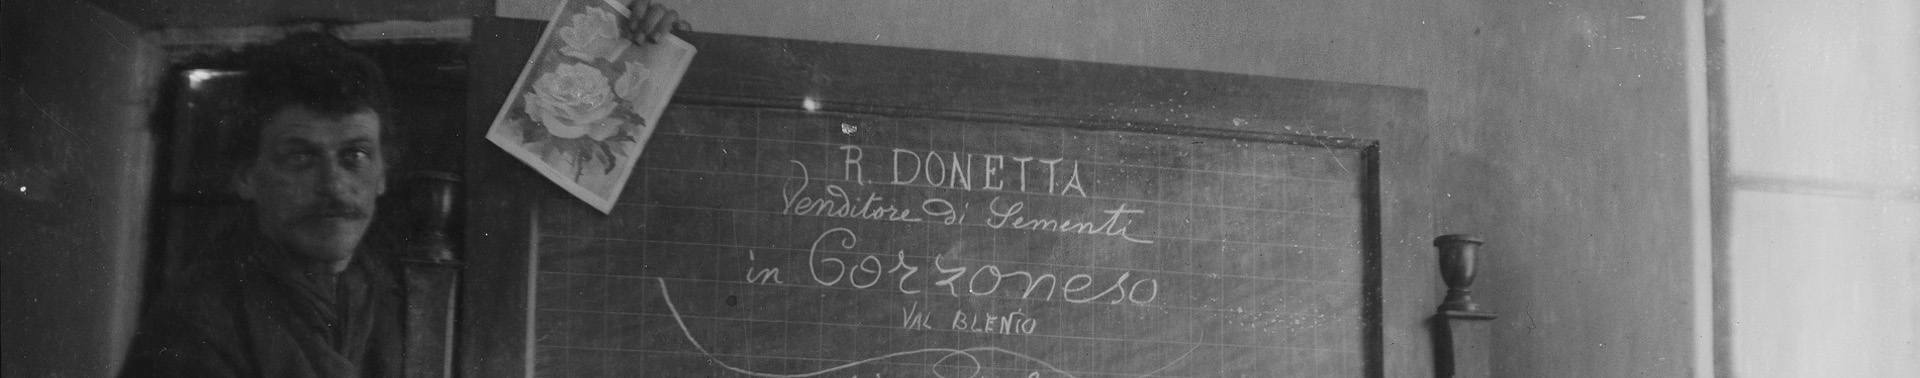 R. DONETTA
Venditore di Sementi
in Corzoneso
VAL BLENIO